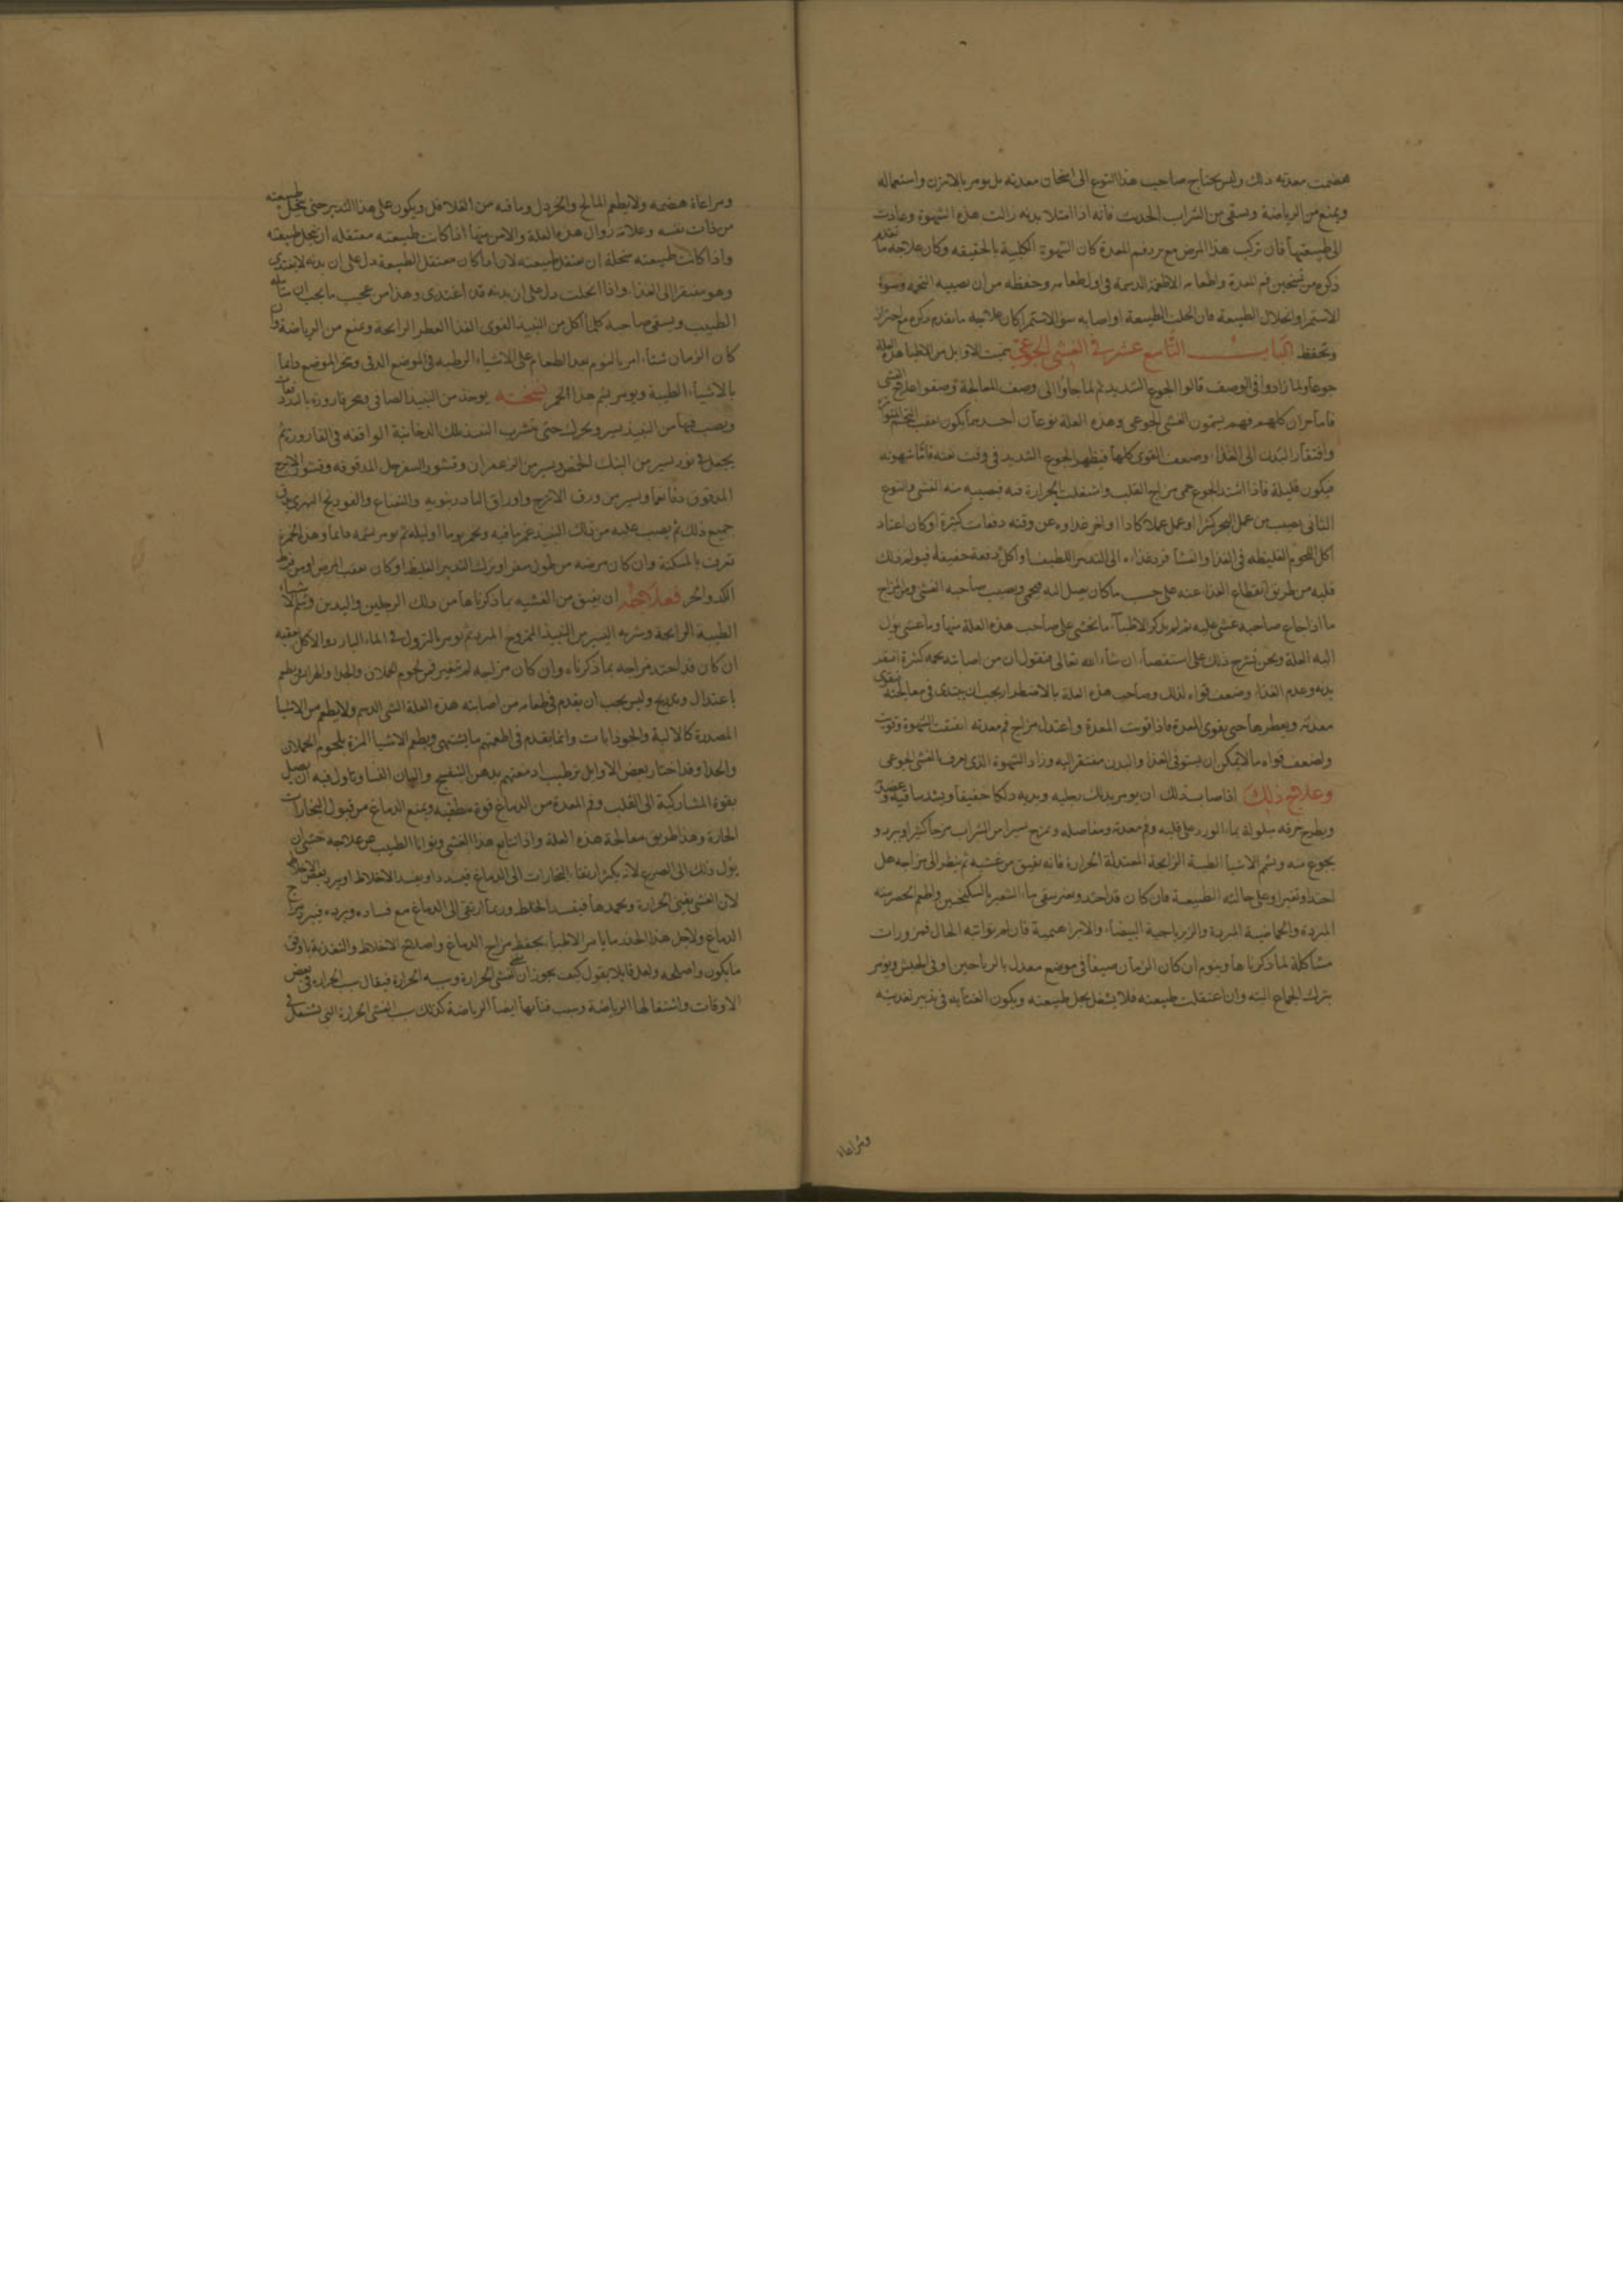 هضمت معدته ذلك وليس يحتاج صاحب هذا النوع الى اسخان معدته بل يومر بالابزن واستعماله
ويمنع من الرياضة ويسقى من الشراب الحديث فانه اذا امتلا بدنه زالت هذه الشهوة وعادت
الى طبيعتها فان تركب هذا المرض مع برد فم المعدة كان الشهوة الكلبية بالحقيقه وكان علاجه ما تقدم
ذكره من تسخين فم المعدة واطعامه الاطعمة الدسمة فى اول طعامه وحفظه من ان تصيبه التخمه وسوء
الاستمرا وانحلال الطبيعة فان انحلت الطبيعة او اصابه سوء الاستمرا كان علاجه ما تقدم ذكره مع احتراز
وتحفظ الباب التاسع عشر فى الغشى الجوعى سميت الاوايل من الاطبا هذه العلة
جوعا ولما زادوا فى الوصف قالوا الجوع الشديد ثم لما جاؤا الى وصف المعالجة وصفوا علاج الغشى
فاما من كلهم فهم يسمون الغشى الجوعى وهذه العلة نوعان احدهما يكون بعقب التخم
وافتقار البدن الى الغذاء وضعف القوى كلها فيظهر الجوع الشديد فى وقت منه فاما شهوته
فيكون قليلة فاذا اشتد الجوع حمى مزاج القلب واشتعلت الحرارة فيه فيصيبه منه الغشى والنوع
الثانى يصيب من عمل البحر كثيرا او عمل عملا كادا او اخر غداوه عن وقته دفعات كثيرة او كان اعتاد
اكل اللحوم الغليظه فى الغذا والعشا فرد غذاءه الى التدبير اللطيف او اكل دفعة خفيفة فيولد ذلك
قلبه من طريق انقطاع الغذا عنه على حسب ما كان يصل اليه فيحمى ويصيب صاحبه الغشى ومن المزاج
ما اذا جاع صاحبه غشى عليه ثم لم يذكر الاطبا ما يخشى على صاحب هذه العلة منها وما عسى يؤل
اليه العلة ونحن نشرح ذلك على استقصاء ان شاء الله تعالى فنقول ان من اصابته تخمه كثيرة افتقر
بدنه وعدم الغذاء وضعف قواه لذلك وصاحب هذه العلة بالاضطرار يجب ان يبتدى فى معالجته بتقوى
معدته ويعطرها حتى يقوى المعدة فاذا قويت المعدة واعتدل مزاج فم معدته انبعثت الشهوة وقويت
ولضعف قواه ما لا يمكن ان يستوفى الغذا والبدن مفتقر اليه وزاد الشهوة الذى يعرف الغشى الجوعى
وعلاج ذلك اذا اصابه ذلك ان يومر بدلك رجليه ويديه دلكا خفيفا ويشد ساقيه وعضديه
ويطرح خرقه مبلولة بماء الورد على قلبه وفم معدته ومفاصله ويمزج يسيرا من الشراب مزجا كثيرا ويبرد و
يجوع منه ويشم الاشيا الطيبة الرايحة المعتدلة الحرارة فانه يفيق من غشيه ثم ينظر الى مزاجه هل
احتد وتغير او على حالته الطبيعية فان كان قد احتد وتغير سقى ماء الشعير بالسكنجبين واطعم الحصرميه
المبردة والحماضية المبردة والزيرباجية البيضاء والابراهيمية فان لم تواتيه الحال فمزورات
مشاكلة لما ذكرناها وينوم ان كان الزمان صيفا فى موضع معدل بالرياحين او فى الخيش ويومر
بترك الجماع البته وان اعتقلت طبيعته فلا يشغل بحل طبيعته ويكون العناية فى تدبير تغذيته
ومراعاة
ومراعاة هضمه ولا يطعم المالح والخردل وما فيه من الفلافل ويكون على هذا التدبير حتى ينحل طبيعته
من ذات نفسه وعلامة زوال هذه العلة والامن منها اذا كانت طبيعته معتقله ان ينحل طبيعته
واذا كانت طبيعته منحلة ان يعتقل طبيعته لان اذا كان معتقل الطبيعة دل على ان بدنه لا يغتدى
وهو مفتقر الى الغذاء واذا انحلت دل على ان بدنه قد اغتدى وهذا من عجيب ما يجب ان يتامله
الطبيب ويسقى صاحبه كلما اكل من النبيذ القوى الغذا العطر الرايحة ويمنع من الرياضة وان
كان الزمان شتاء امر بالنوم بعد الطعام على الاشياء الرطبه فى الموضع الدفى وبخر الموضع دايما
بالاشياء الطيبة ويومر بشم هذا الخمر نسخته يوخذ من النبيذ الصافى وبخر قارورة بالند دفعات
ويصب فيها من النبيذ يسير ويحرك حتى يشرب النبيذ تلك الدخانية الواقفه فى القارورة ثم
يجعل فى تور يسير من المسك الخالص ويسير من الزعفران وقشور السفرجل المدقوقه وقشور الاترج
المدقوق دقا ناعما ويسير من ورق الاترج واوراق البادرنبويه والنعناع والفودنج النهرى يدق
جميع ذلك ثم يصب عليه من ذلك النبيذ غمر ما فيه ويخمر يوما او ليلة ثم يومر بشمه دايما وهذه الخمرة
تعرف بالمسكنة وان كان مرضه من طول سفر او ترك التدبير الغليظ او كان عقب المرض او من فرط
الكد والحر فعلاجه ان يفيق من الغشيه بما ذكرناها من دلك الرجلين واليدين وشم الاشياء
الطيبة الرايحة وشربه اليسير من النبيذ الممزوج المبرد ثم يومر بالنزول فى الماء البارد والاكل عقبه
ان كان قد احتد مزاجه بما ذكرناه وان كان مزاجه لم يتغير فمن لحوم الحملان والجدا والفراريج ويطعم
باعتدال وتدريج وليس يجب ان يقدم فى طعام من اصابته هذه العلة الشى الدسم ولا يطعم من الاشيا
المصدرة كالالية والجوذابات وانما يقدم فى اطعمتهم ما يشتهى ويطعم الاشيا المزة بلحوم الحملان
والجدا وقد اختار بعض الاوايل ترطيب ادمغتهم بدهن البنفسج والبان النسا وتاول فيه ان يصل
بقوة المشاركية الى القلب وفم المعدة من الدماغ قوة مطفيه ويمنع الدماغ من قبول البخارات
الحارة وهذا طريق معالجة هذه العلة واذا تتابع هذا الغشى وتوانا الطبيب عن علاجه خشى ان
يؤل ذلك الى الصرع لانه يكثر ارتفاع البخارات الى الدماغ فيسدد او يفسد الاخلاط او يبرد بعض الاخلاط
لان الغشى يفنى الحرارة ويخمدها فيفسد الخلط وربما ارتقى الى الدماغ مع فساده وبرده فيبرد مزاج
الدماغ ولاجل هذا الحذر ما يامر الاطباء بحفظ مزاج الدماغ واصلاح الاخلاط والتغذية باوفق
ما يكون واصلحه ولعل قايلا يقول كيف يجوز ان تطفى الغشى الحرارة وسببه الحرارة فيقال سبب الحرارة فى بعض
الاوقات واشتعالها الرياضة وسبب فنائها ايضا الرياضة كذلك سبب الغشى الحرارة التى تشتعل فى